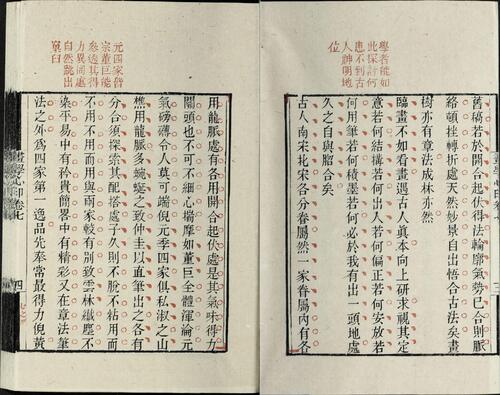 學者能如
此探討何
患不到古
人神明地
位
舊稿若於開合起伏得法輪廓氣勢已合則脈
絡頓挫轉折處天然妙景自出悟合古法矣畫
樹亦有章法成林亦然
臨畫不如看畫遇古人真本向上研求視其定
意若何結構若何出入若何偏正若何安放若
何用筆若何積墨若何必於我有出一頭地處
久之自與脗合矣
古人南宋北宋各分眷屬然一家眷屬內有各
元四家皆
宗董巨能
參透其得
力異同處
自然跳出
窠臼
用龍脈處有各用開合起伏處是其氣味得力
關頭也不可不細心揣摩如董巨全體渾淪元
氣磅礴令人莫可端倪元季四家俱私淑之山
樵用龍脈多蜿蜒之致仲圭以直筆出之各有
分合須探索其配搭處子久則不脫不粘用而
不用不用而用與兩家較有別致雲林纖塵不
染平易中有矜貴簡畧中有精彩又在章法筆
法之外為四家第一逸品先奉常最得力倪黃
畫學心印卷七
四